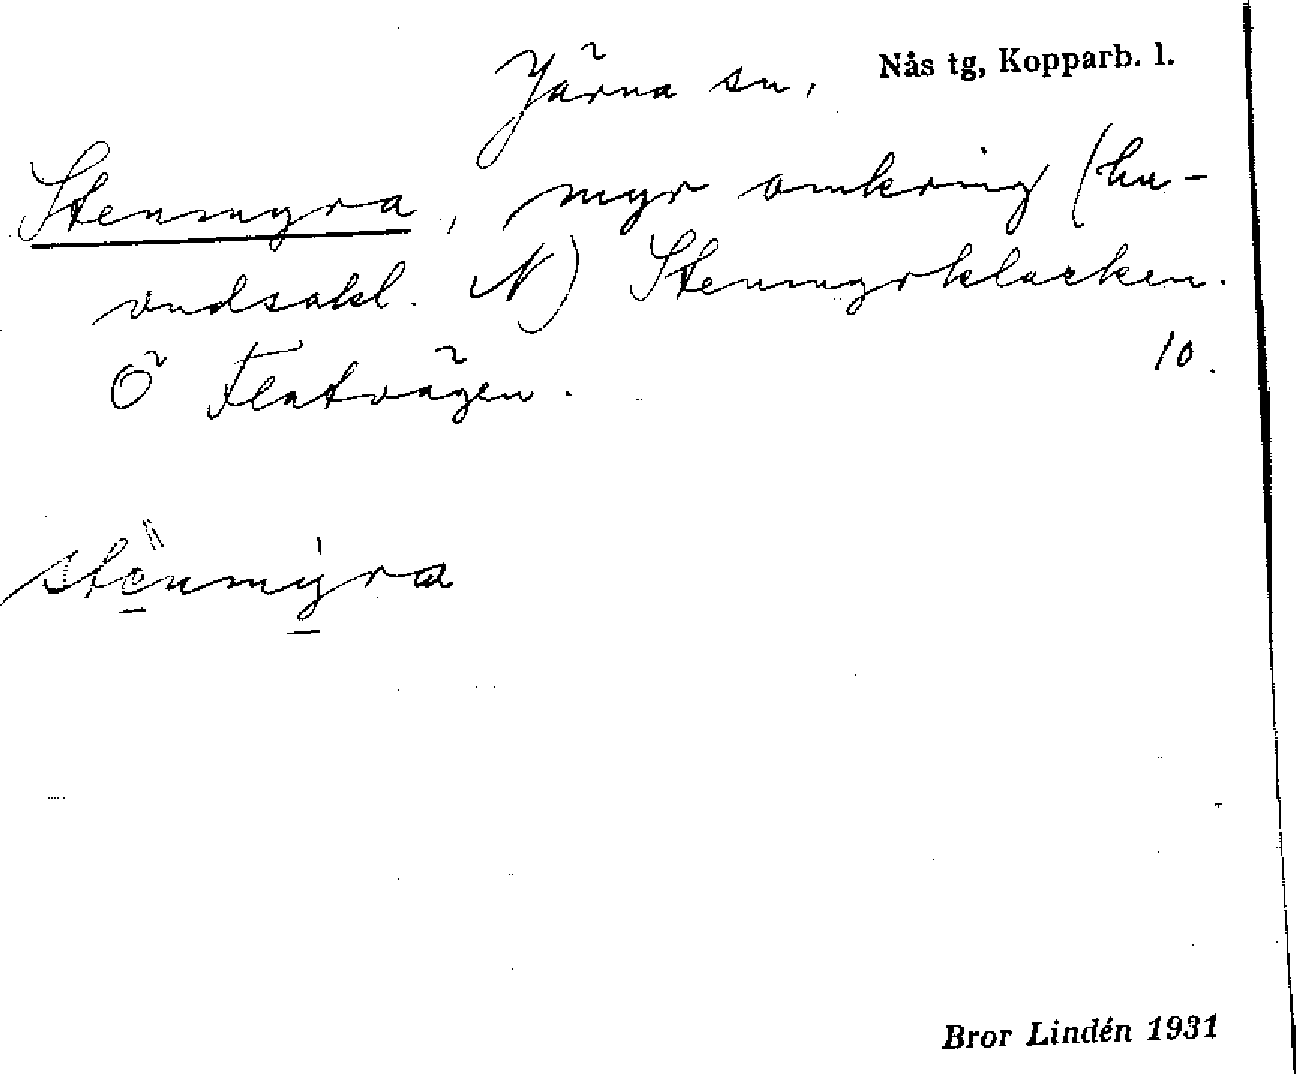 Järna sn, Nås tg, Kopparb. l.
Stenmyra, myr omkring (hu-
vudsakl. N) Stenmyrklacken.
Ö Flatvägen. 10.
stenmyra
Bror Lindén 1931